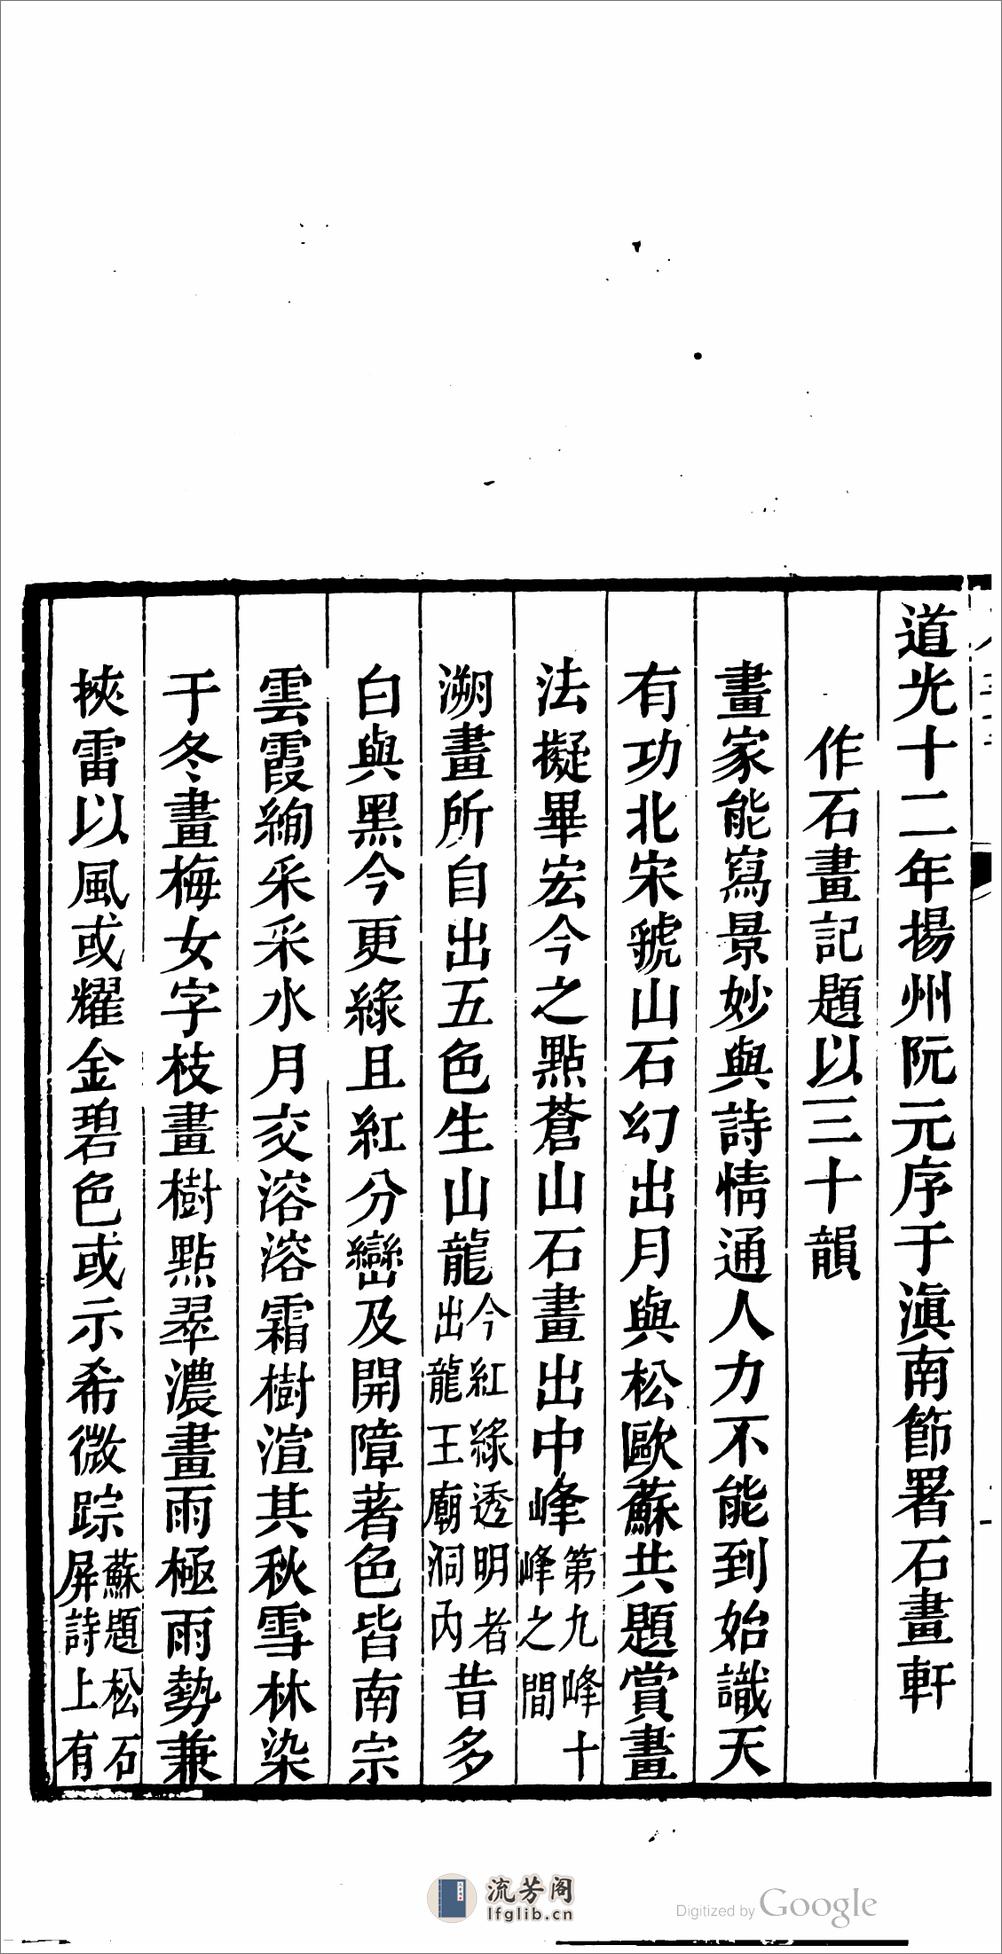 道光十二年揚州阮元序于滇南節署石畫軒
作石畫記題以三十韻
畫家能寫景妙與詩情通人力不能到始識天
有功北宋虢山石幻出月與松歐蘇共題賞畫
法擬畢宏今之點蒼山石畫出中峰第九峰十峰之間
溯畫所自出五色生山龍今紅綠透明者出龍王廟洞內昔多
白與黑今更綠且紅分巒及開障著色皆南宗
雲霞絢采采水月交溶溶霜樹渲其秋雪林染
于冬畫梅女字枝畫樹點翠濃畫雨極雨勢兼
挾雷以風或耀金碧色或示希微踪蘇題松石屏詩上有
流芳阁
lfglib.cn
Digitized by Google